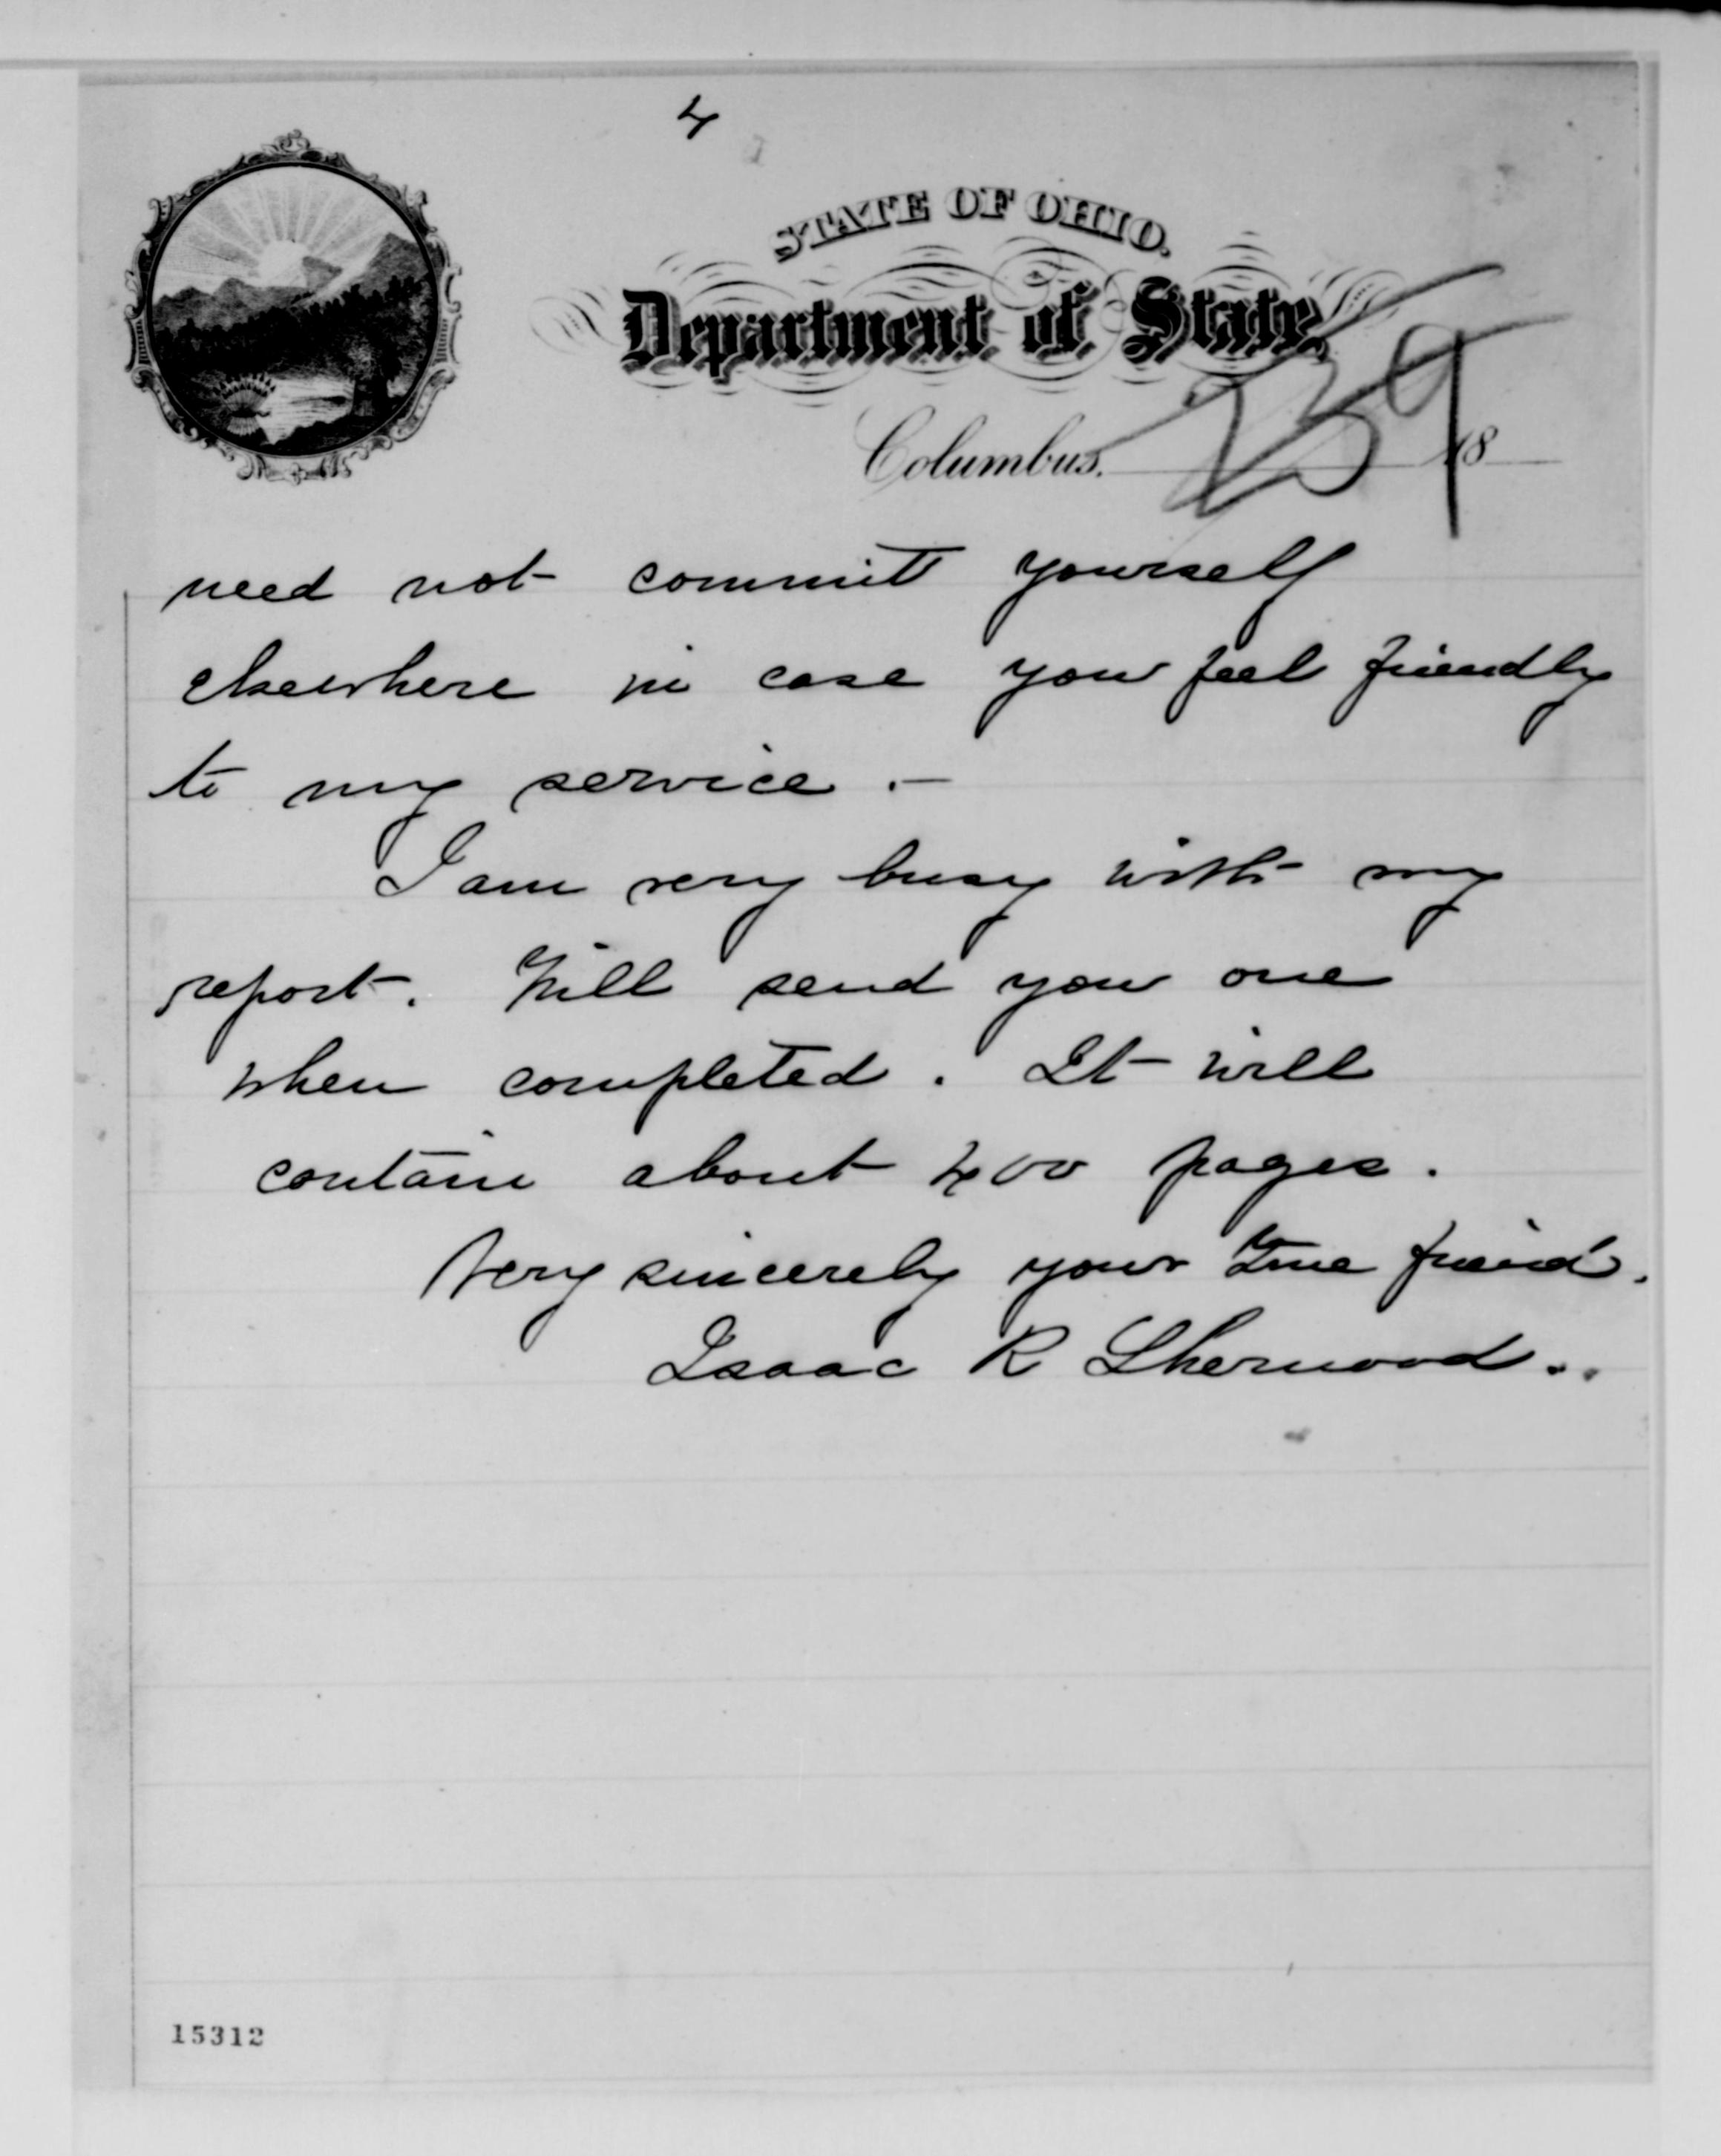 4
STATE OF OHIO.
Department of State,
Columbus, 18
239
need not commit yourself
elsewhere in case you feel friendly
to my service. —
I am very busy with my
report. Will send you one
when completed. It will
contain about 400 pages.
Very sincerely your true friend.
Isaac R Sherwood.
15312